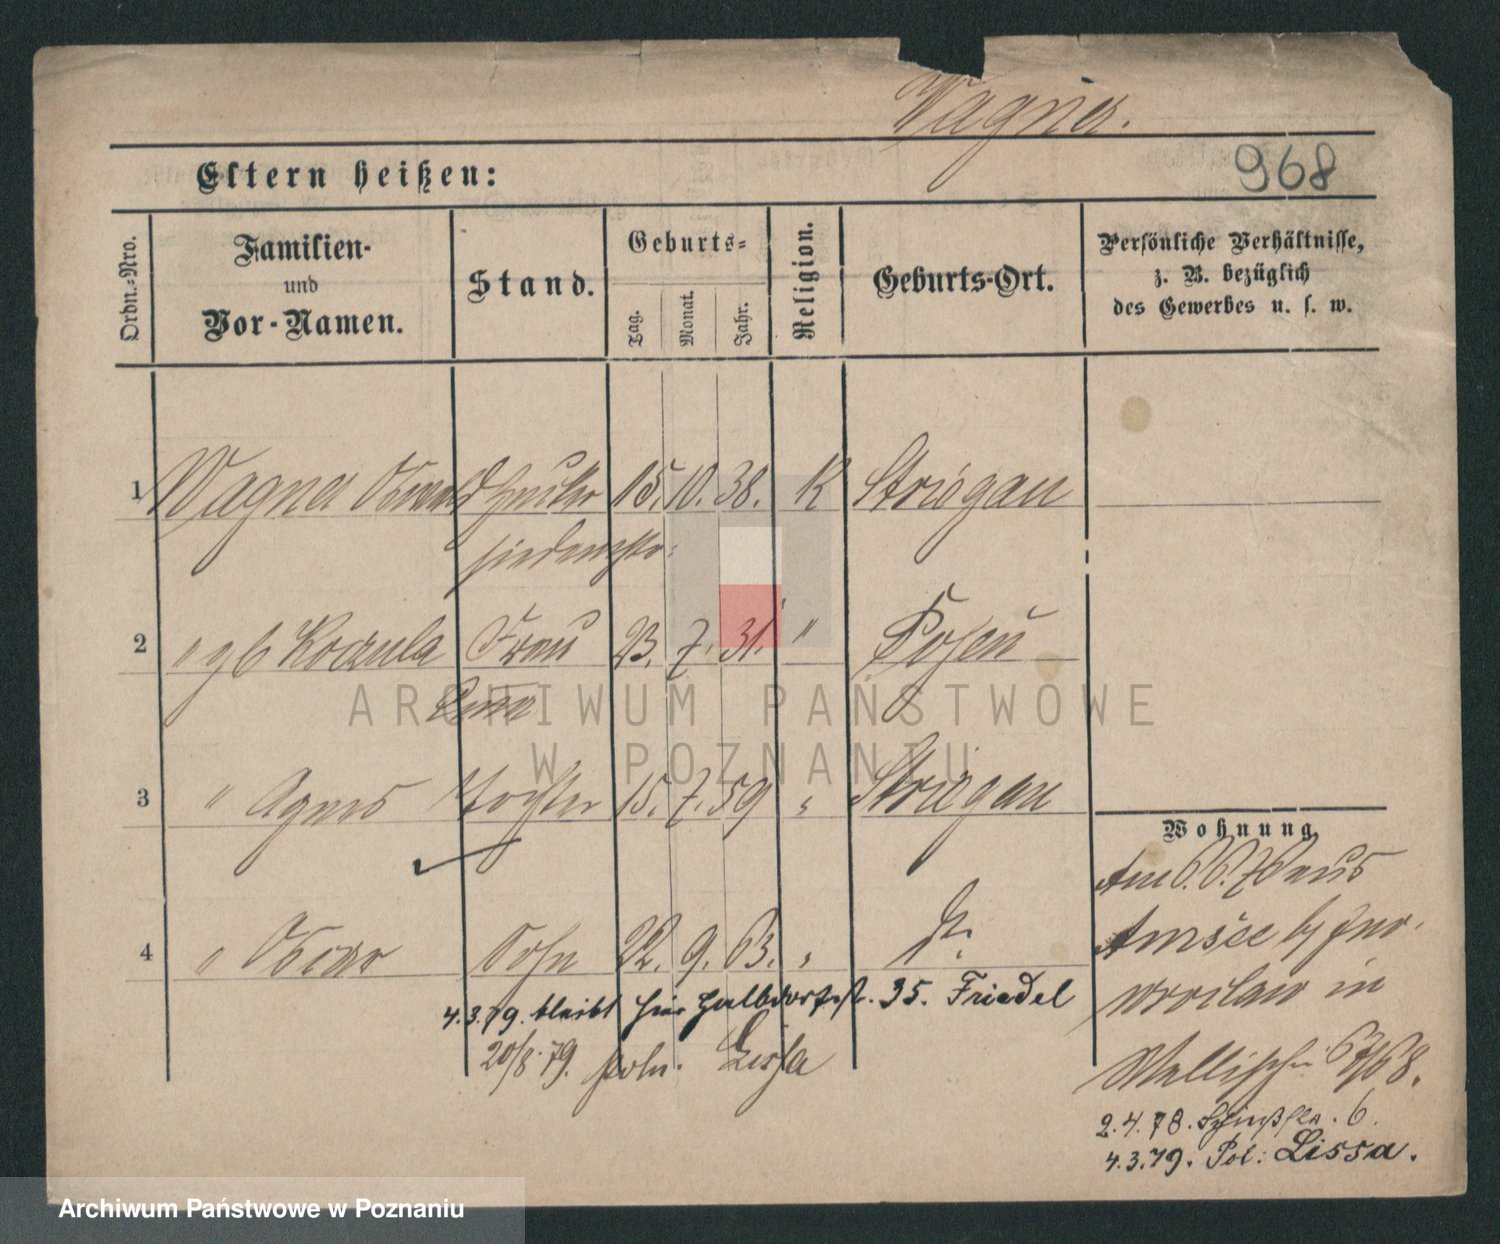 Wagner.
968
Eltern heißen:
Ordn.-Nro.
Familien-
und
Vor-Namen.
Stand.
Geburts-
Tag.
Monat.
Jahr.
Religion.
Geburts-Ort.
Persönliche Verhältnisse,
z. B. bezüglich
des Gewerbes u. s. w.
1 Wagner Oswald 15. 10. 38. K Striegau
2 " gb Koczula Frau 23. 7. 31. " Posen
ARCHIWUM PAŃSTWOWE
W POZNANIU
3 " Agnes Tochter 15. 7. 59 " Striegau
Wohnung.
Am 6.6.76 aus
4 " Oscar Sohn 22. 9. 63. " St.
Amsee b/ Ino-
wrocław in
4.3.79. bleibt hier Halbdorfstr. 35. Friedel
20/8.79. poln. Lissa
Wallischei 67/68.
2.4.78. 6.
4.3.79. Pol: Lissa.
Archiwum Państwowe w Poznaniu